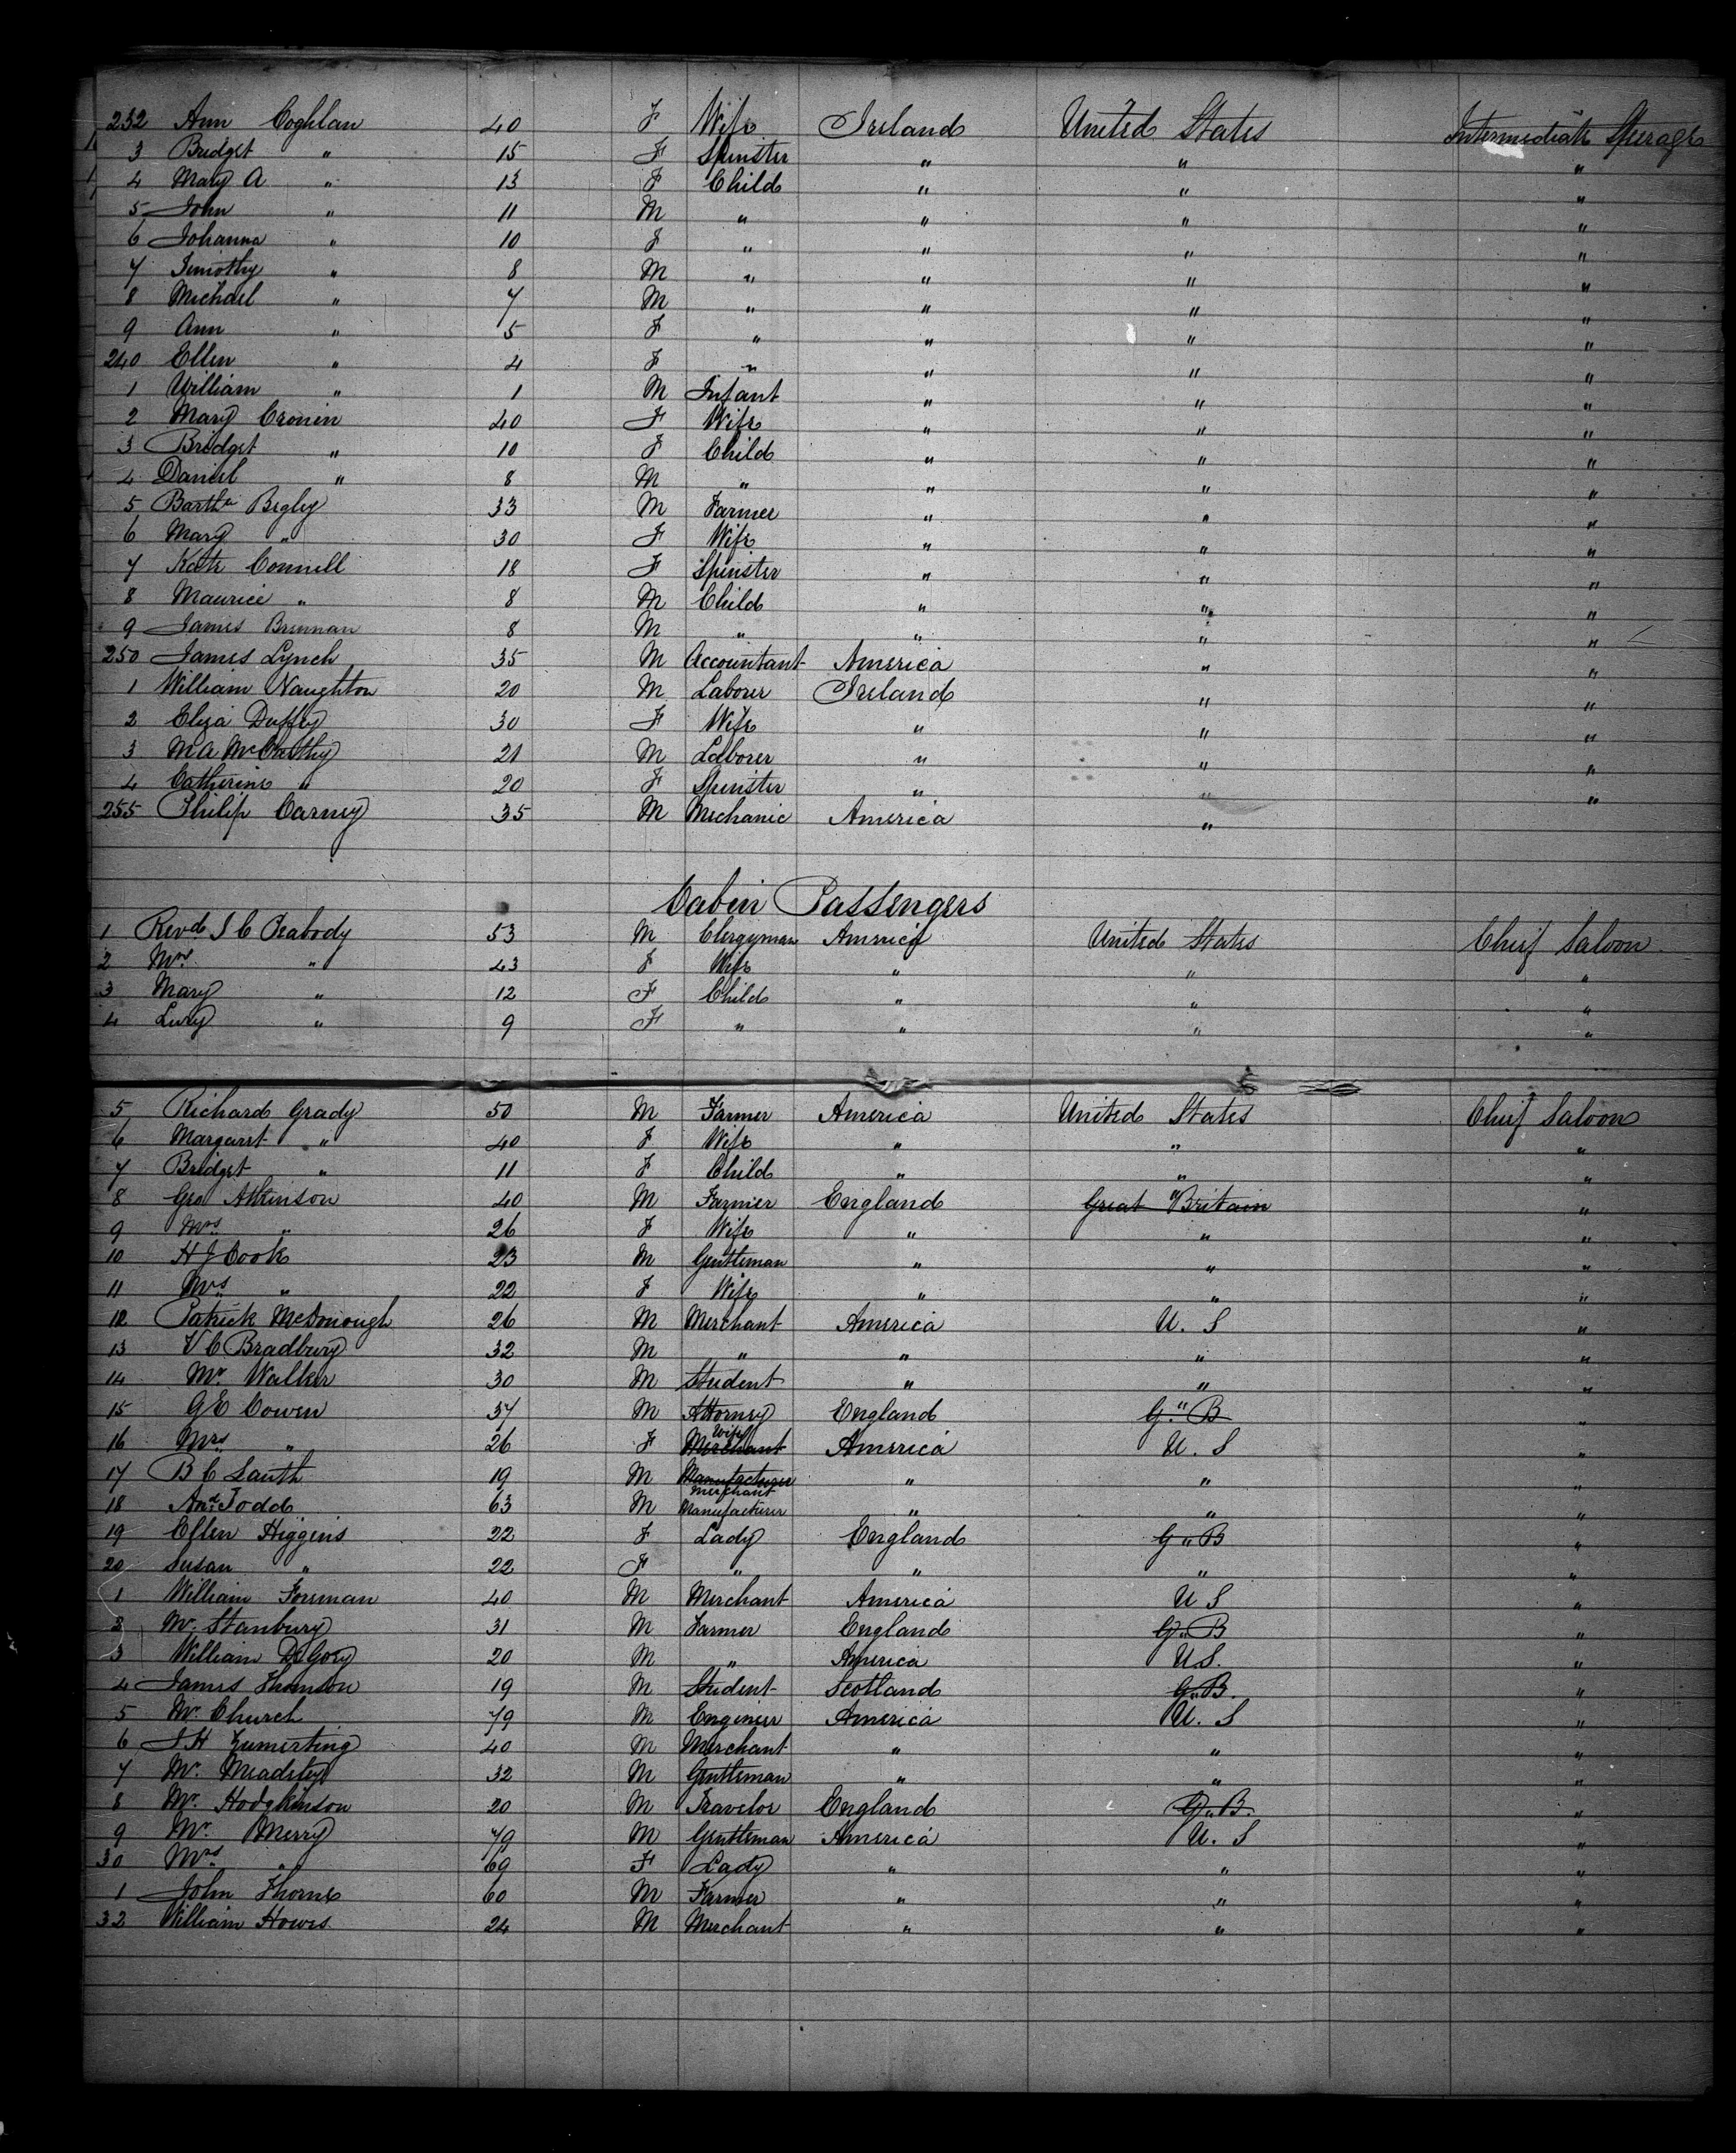 232 Ann Coghlan 40 F Wife Ireland United States Intermediate Steerage
3 Bridget " 15 F Spinster " " "
4 Mary A " 13 F Child " " "
5 John " 11 M " " " "
6 Johanna " 10 F " " " "
7 Timothy " 8 M " " " "
8 Michael " 7 M " " " "
9 Ann " 5 F " " " "
240 Ellen " 4 F " " " "
1 William " 1 M Infant " " "
2 Mary Cronin 40 F Wife " " "
3 Bridget " 10 F Child " " "
4 Daniel " 8 M " " " "
5 Barthw Begley 33 M Farmer " " "
6 Mary " 30 F Wife " " "
7 Kate Connell 18 F Spinster " " "
8 Maurice " 8 M Child " " "
9 James Brennan 8 M " " " "
250 James Lynch 35 M Accountant America " "
1 William Naughton 20 M Laborer Ireland " "
2 Eliza Duffey 30 F Wife " " "
3 M A McCarthy 21 M Laborer " " "
4 Catherine " 20 F Spinster " " "
255 Philip Carney 35 M Mechanic America "
Cabin Passengers
1 Revd J C Peabody 53 M Clergyman America United States Chief Saloon
2 Mrs " 43 F Wife " " "
3 Mary " 12 F Child " " "
4 Lucy " 9 F " " " "
5 Richard Grady 50 M Farmer America United States Chief Saloon
6 Margaret " 40 F Wife " " "
7 Bridget " 11 F Child " " "
8 Geo Atkinson 40 M Farmer England Great Britain "
9 Mrs " 26 F Wife " " "
10 H J Cook 23 M Gentleman " " "
11 Mrs " 22 F Wife " " "
12 Patrick McDonough 26 M Merchant America U. S "
13 V C Bradbury 32 M " " " "
14 Mr Walker 30 M Student " " "
15 G E Cowen 37 M Attorney England G. B "
16 Mrs " 26 F Merchant Wife America U. S "
17 B C 19 M Manufacturer Merchant " " "
18 Todd 63 M Manufacturer " " "
19 Ellen Higgens 22 F Lady England G " B "
20 Susan " 22 F " " " "
1 William Foreman 40 M Merchant America U S "
2 Mr Stanbury 31 M Farmer England G. B "
3 William 20 M " America U S. "
4 James Thomson 19 M Student Scotland G. B. "
5 Mr Church 79 M Engineer America U. S "
6 40 M Merchant " " "
7 Mr 32 M Gentleman " " "
8 Mr Hodgkinson 20 M Travelor England G. B. "
9 Mr Merry 79 M Gentleman America U. S "
30 Mrs " 69 F Lady " " "
1 John Thorne 60 M Farmer " " "
32 William Howes 24 M Merchant " " "